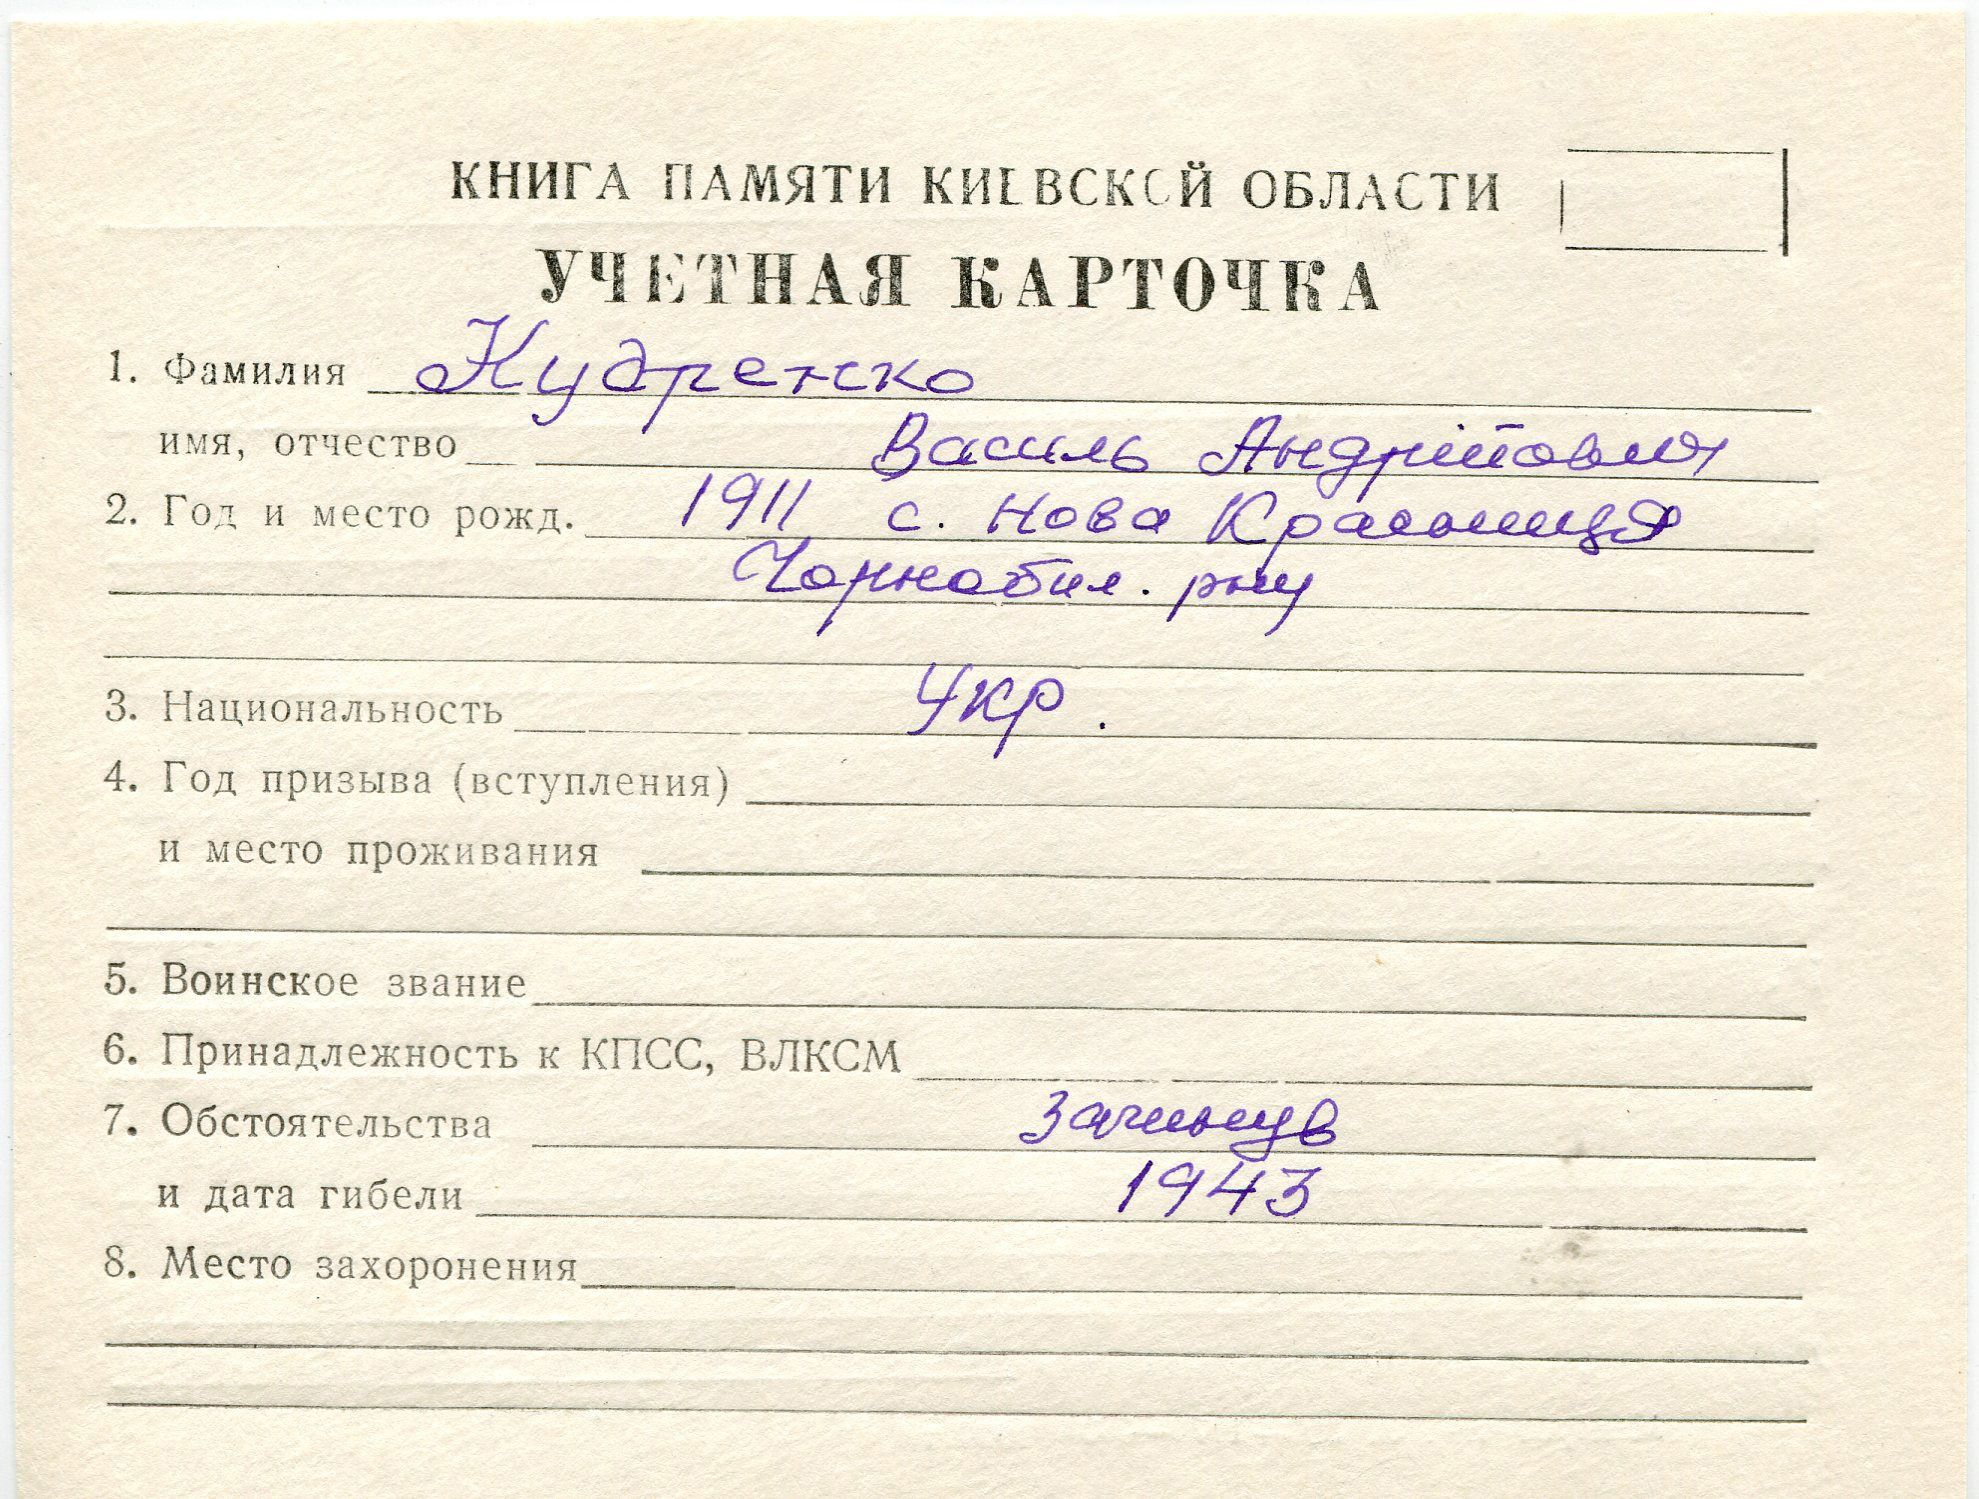 КНИГА ПАМЯТИ КИЕВСКОЙ ОБЛАСТИ
УЧЕТНАЯ КАРТОЧКА
1. Фамилия Кудренко
имя, отчество Василь Андрійович
2. Год и место рожд. 1911 с. Нова Красниця
Чорнобил. р-ну
3. Национальность Укр.
4. Год призыва (вступления)
и место проживания
5. Воинское звание
6. Принадлежность к КПСС, ВЛКСМ
7. Обстоятельства загинув
и дата гибели 1943
8. Место захоронения